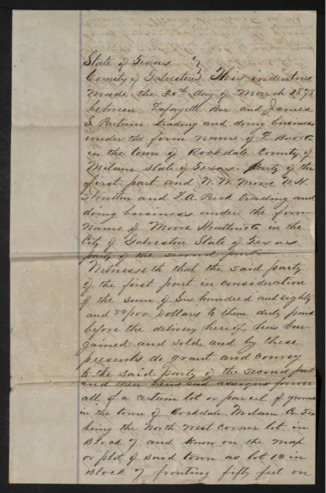 State of Texas
County of Galveston This indenture
Made the 20th day of March 1875
between Lafayett and James
S. trading and doing business
under the firm name of
in the town of Rockdale County of
Milam State of Texas. Party of the
first part and W. W. Moore W. H.
Stratton and trading and
doing business under the firm
name of Moore Stratton in the
City of Galveston State of Texas
party of the second part
Witnesseth that the said party
of the first part in consideration
of the sum of Six hundred and eighty
and /100 Dollars to them duly paid
before the delivery hereof, has bar-
gained and sold and by these
presents do grant and convey
to the said party of the second part
and their heirs and assigns forever
all of a certain lot or parcel of ground
in the town of Rockdale Milam Co. Tex
being the North West Corner lot in
Block 7 and known on the map
or plot of said town as lot 12 in
Block 7 fronting fifty feet on